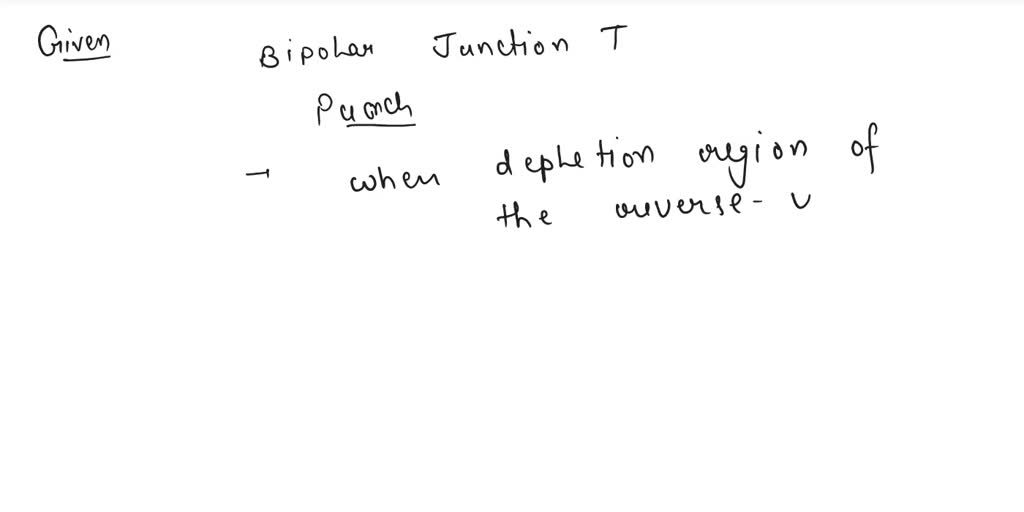 Given
Bipolar Junction T
Punch
→ when depletion region of
the reverse- v